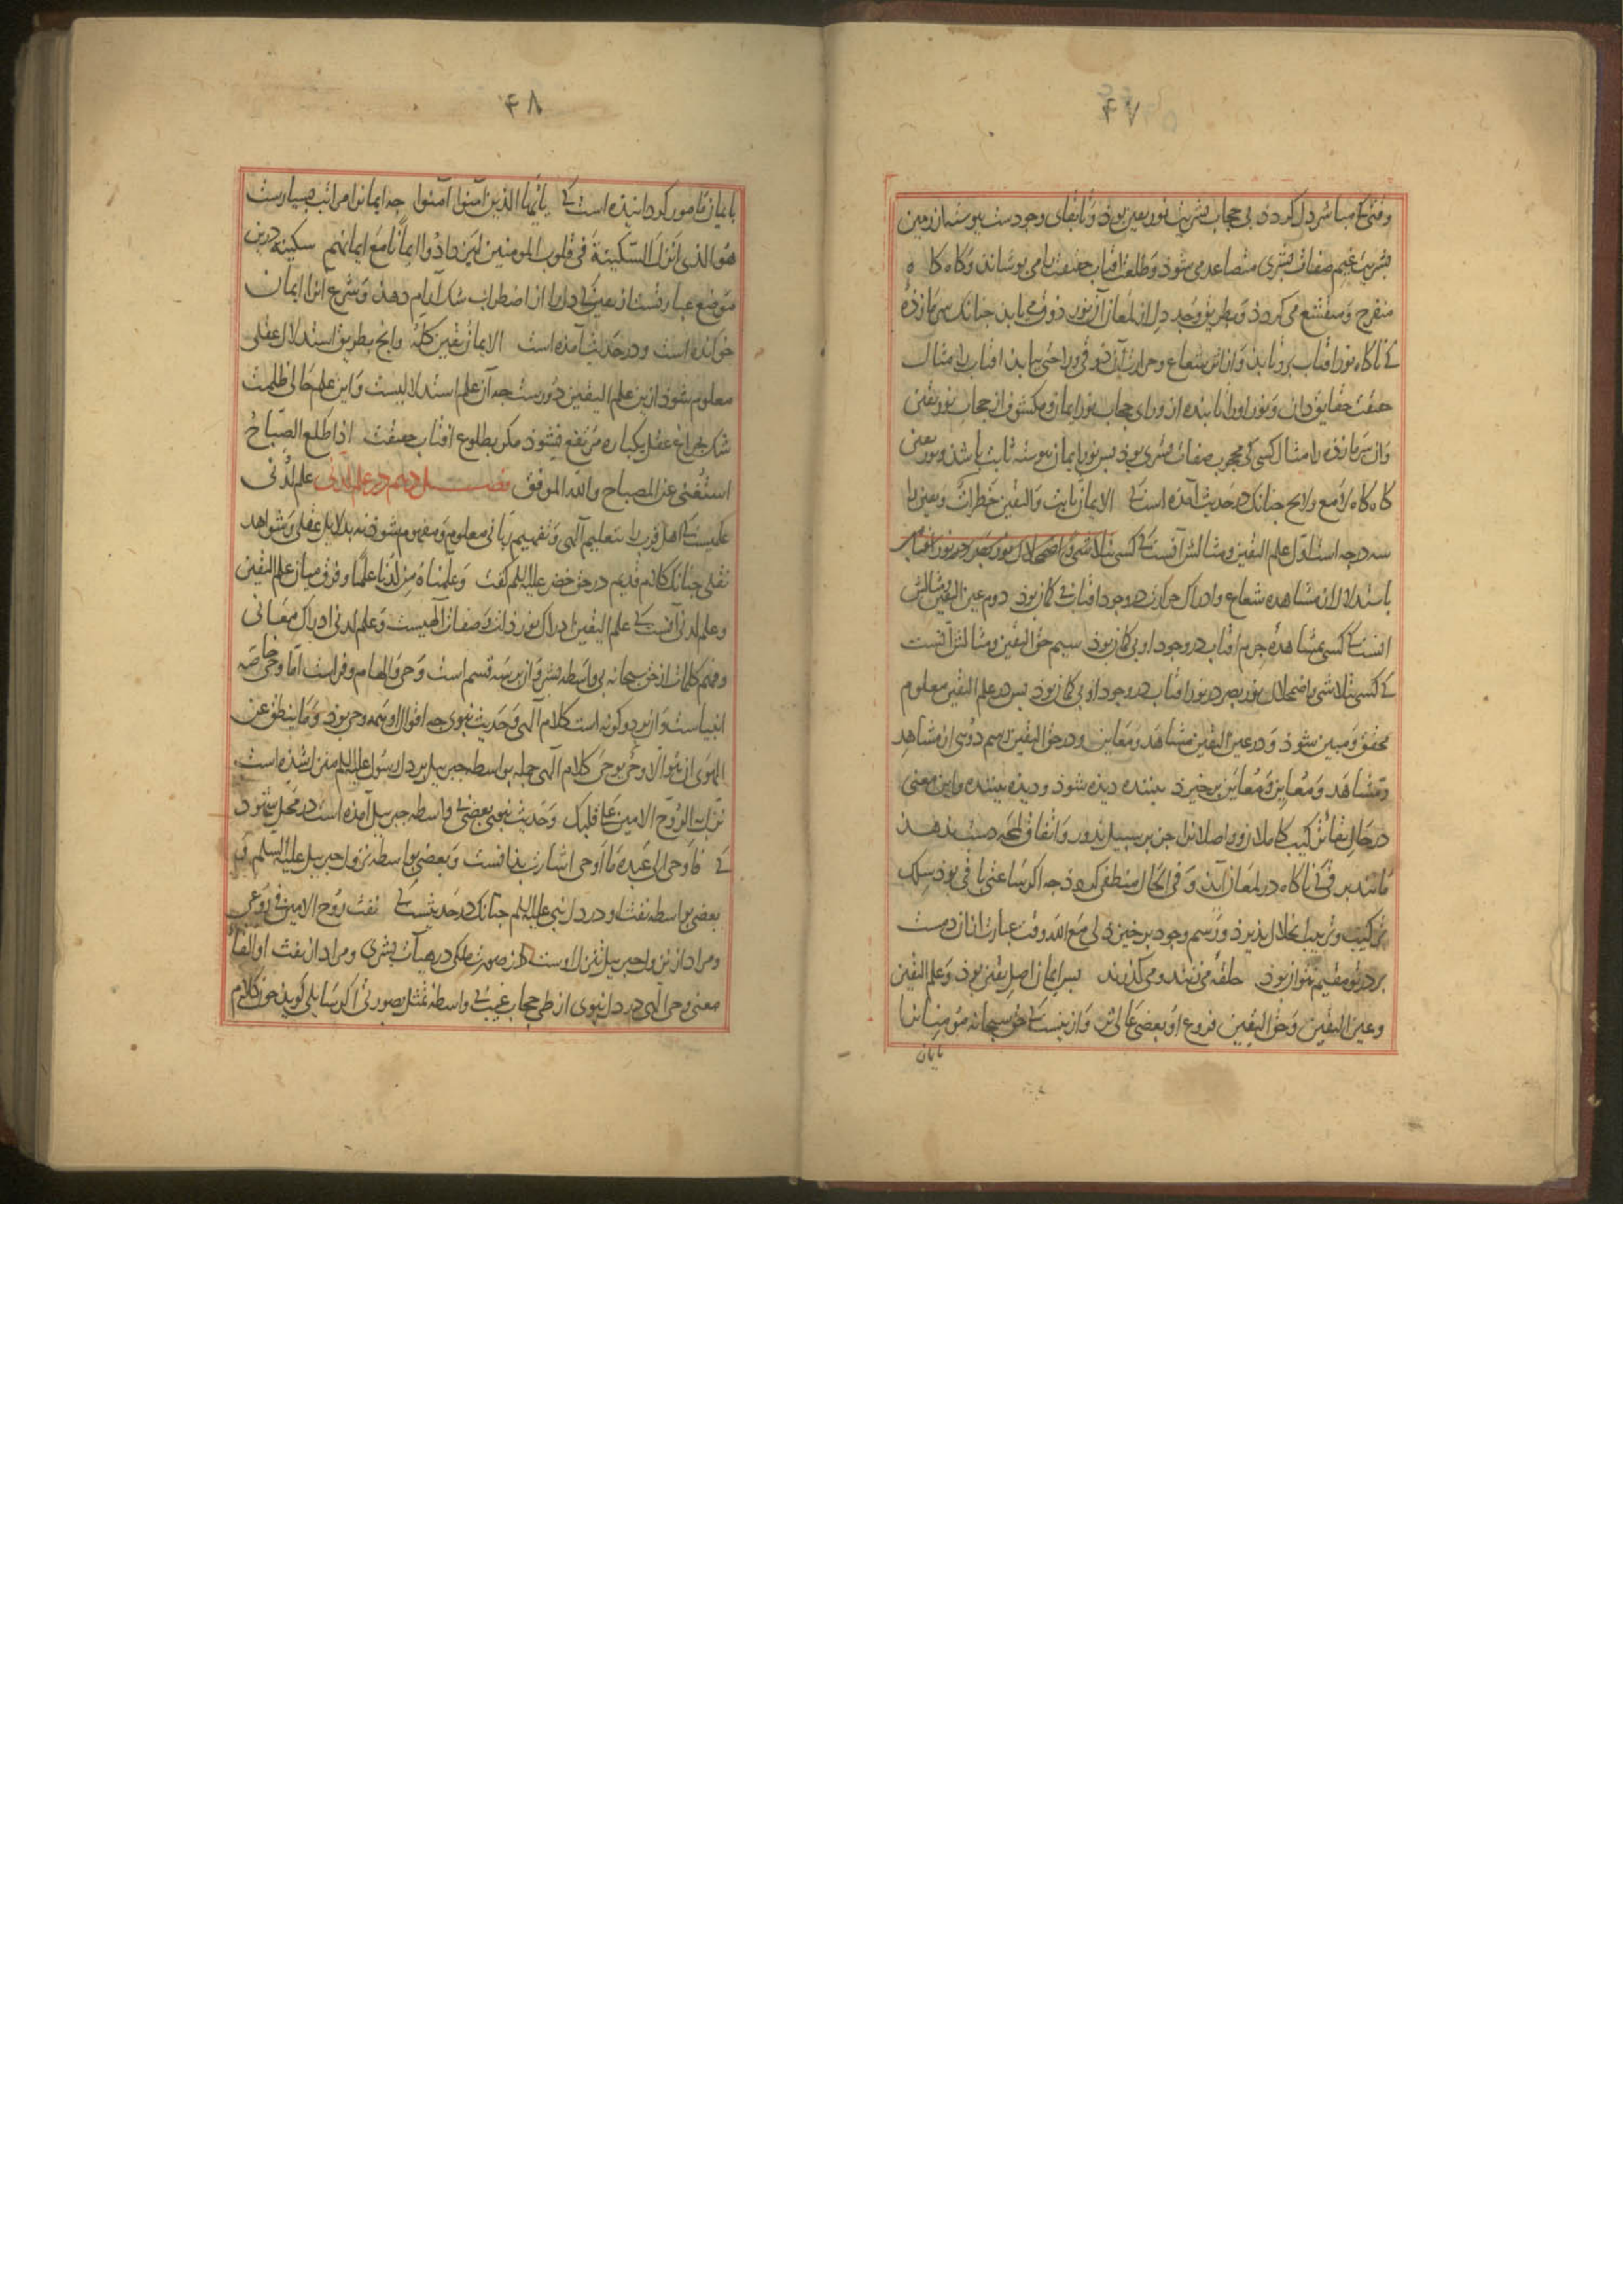 ۴۷
وقتی که مباشر دل گردد بی حجاب بشریت نور یقین بوذ و تا بقای وجودست پیوسته از زمین
بشریت غیم صفات بشری متصاعد می شود و طلعت افتاب حقیقت را می پوشاند و گاه گاه
متفرج و منقشع می گردد و بطریق وجد دل از لمعان آن نور ذوق می یابد جنانک سرمازده
کی ناگاه نور افتاب برو تابد و از اثر شعاع و حرارت آن ذوق و راحتی بیابد افتاب را مثال
حقیقت حقایق دان و نور او را تابنده از ورای حجاب نور ایمان و مکشوف از حجاب نور یقین
وان سرمازده را مثال کسی کی محجوب صفات بشری بوذ بس نور ایمان پیوسته ثابت باشد و نور یقین
گاه گاه لامع و لایح جنانک در حدیث آمده است کی الایمان ثابت والیقین خطرات و یقین را
سه درجه است اول علم الیقین و مثالش آنست کی کسی
باستدلال از مشاهده شعاع و ادراک حرارت در وجود افتاب بی گمان بوذ دوم عین الیقین و مثالش
انست کی کسی بمشاهدهٔ جرم افتاب در وجود او بی گمان بوذ سیم حق الیقین و مثالش آنست
کی کسی بتلاشی و اضمحلال نور بصر در نور افتاب در وجود او بی گمان بوذ بس در علم الیقین معلوم
محقق و مبین شود و در عین الیقین مشاهد و معاین و در حق الیقین رسم دوئی از مشاهد
و مشاهد و معاین و معاین برخیزد بیننده دیذه شود و دیذه بیننده و این معنی
در حال بقای ترکیب کاملان و واصلان را جز بر سبیل ندور و اتفاق لمحه دست ندهد
مانند برقی کی ناگاه در لمعان آید و فی الحال منطفی گردد جه اگر ساعتی باقی بوذ سلک
ترکیب و ترتیب انحلال پذیرد و رسم وجود برخیزد لی مع الله وقت عبارت از آن دست
بر در تو مقیم نتوان بوذ حلقه می زنند و می گذرند بس ایمان اصل یقین بوذ و علم الیقین
و عین الیقین و حق الیقین فروع او بعضی عالی تر و از ینست کی حق سبحانه مومنان را
بایمان
۴۸
بایمان مامور گردانیذه است کی یا ایها الذین آمنوا آمنوا جه ایمان را مراتب بسیارست
هو الذی انزل السکینة فی قلوب المومنین لیزدادوا ایمانا مع ایمانهم سکینه درین
موضع عبارتست از یقین کی دل را از اضطراب شک آرام دهد و شرع انرا ایمان
خوانده است و در حدیث آمذه است الایمان یقین کله و انج بطریق استدلال عقلی
معلوم شود ازین علم الیقین دورست جه آن علم استدلالیست و این علم حالی ظلمت
شک بجراغ عقل یکباره مرتفع نشود مگر بطلوع افتاب حقیقت اذا طلع الصباح
استغنی عن المصباح والله الموفق فصل دهم در علم لدنی علم لدنی
علمیست کی اهل قرب را بتعلیم آلهی و تفهیم ربانی معلوم و مفهوم شود نه بدلایل عقلی و شواهد
نقلی جنانک کلام قدیم در حق خضر علیه السلم گفت و علمناه من لدنا علما و فرق میان علم الیقین
و علم لدنی آنست کی علم الیقین ادراک نور ذات و صفات آلهیست و علم لدنی ادراک معانی
و فهم کلمات از حق سبحانه بی واسطه بشر و از بر سه قسم است وحی و الهام و فراست اما وحی خاصه
انبیاست و از بر دو گونه است کلام آلهی و حدیث نبوی جه اقوال او همه وحی بوذ و ما ینطق عن
الهوی ان هو الا وحی یوحی کلام آلهی جمله بواسطه جبرییل بر دل رسول علیه السلم منزل شده است
نزل به الروح الامین علی قلبک و حدیث نبوی بعضی بی واسطه جبرییل آمده است در محل شهود
کی فاوحی الی عبده ما اوحی اشارت بذانست و بعضی بواسطه نزول جبرییل علیه السلم و
بعضی بواسطه نفث او در دل نبی علیه السلم جنانک در حدیثست کی نفث روح الامین فی روعی
و مراد از نزول جبرییل تنزل اوست از صورت ملکی در هیآت بشری و مراد از نفث او القاء
معنی وحی الهی در دل نبوی از طی حجاب غیب بی واسطهٔ تمثل بصورتی اگر سایلی گویذ جون کلام